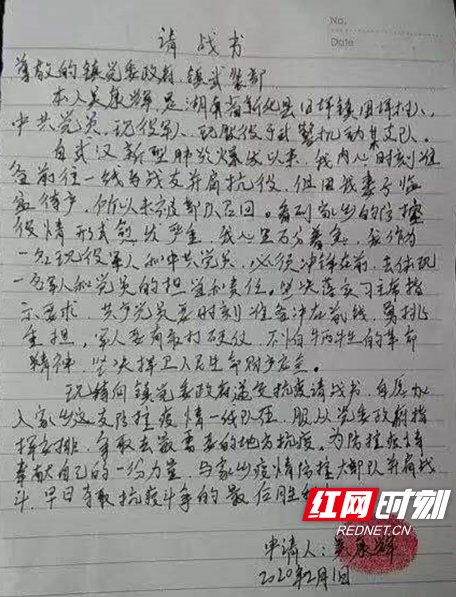 No.
Date
请战书
尊敬的镇党委政府、镇武装部:
本人吴康辉,是湖南省新化县田坪镇田坪村人,
中共党员,现役军人,现服役于武警机动某支队。
自武汉新型肺炎爆发以来,我内心时刻准
备前往一线与战友并肩抗疫,但因我妻子临
盆待产,所以未被部队召回。看到家乡的
疫情形式 严重,我心里万分着急,我作为
一名现役军人和中共党员,必须冲锋在前,去体现
一名军人和党员的担当和责任。坚决落实习主席指
示要求,共产党员要时刻准备冲在前线,勇挑
重担,军人要有敢打硬仗,不怕牺牲的革命
精神,坚决捍卫人民生命财产安全。
现特向镇党委政府递交抗疫请战书,自愿加
入家乡这支防控疫情一线队伍,服从党委政府指
挥安排,争取去最需要的地方抗疫。为防控疫情
奉献自己的一份力量,与家乡疫情防控大部队并肩战
斗,早日争取抗疫斗争的最后胜
申请人:吴康辉
2020年2月1日
红网时刻
REDNET.CN